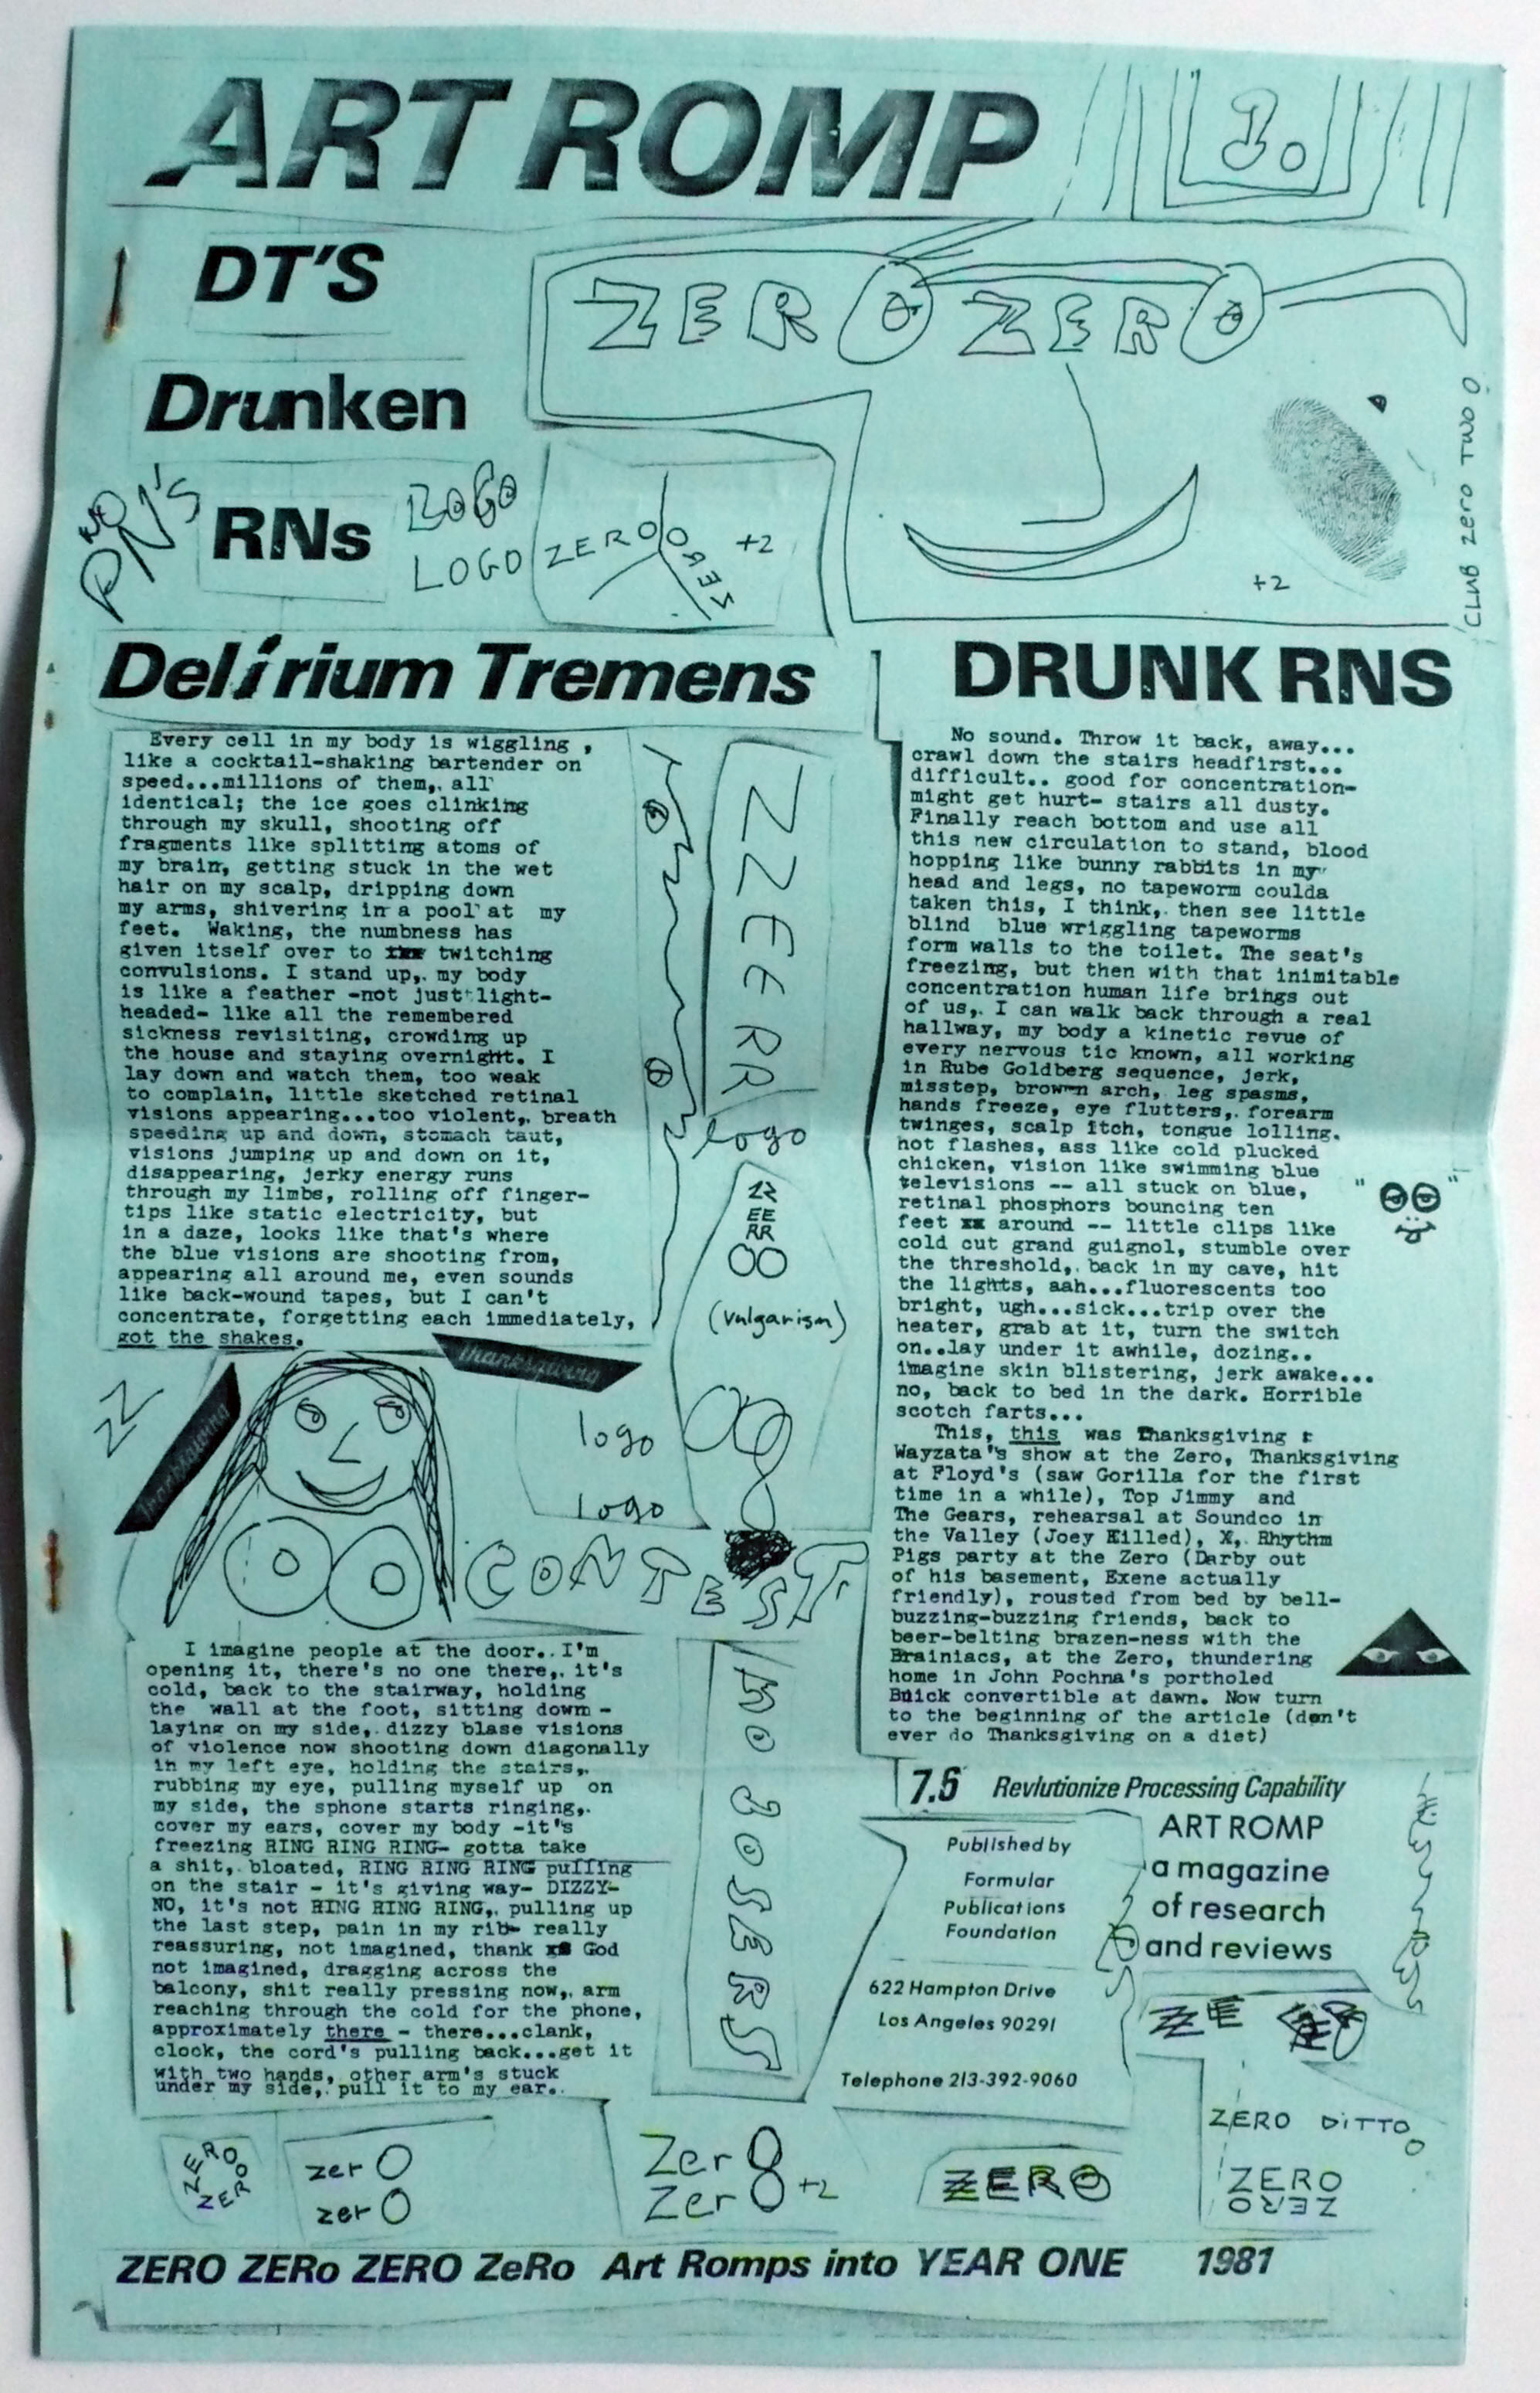 ART ROMP
10
DT'S
Drunken
RNs
NO
RN'S
LOGO
LOGO
ZERO
ZERO
+2
ZERO ZERO
+2
CLUB ZERO TWO O
Delirium Tremens
Every cell in my body is wiggling ,
like a cocktail-shaking bartender on
speed...millions of them,. all
identical; the ice goes clinking
through my skull, shooting off
fragments like splitting atoms of
my brain, getting stuck in the wet
hair on my scalp, dripping down
my arms, shivering in a pool at my
feet. Waking, the numbness has
given itself over to twitching
convulsions. I stand up,. my body
is like a feather -not just light-
headed- like all the remembered
sickness revisiting, crowding up
the house and staying overnight. I
lay down and watch them, too weak
to complain, little sketched retinal
visions appearing...too violent,. breath
speeding up and down, stomach taut,
visions jumping up and down on it,
disappearing, jerky energy runs
through my limbs, rolling off finger-
tips like static electricity, but
in a daze, looks like that's where
the blue visions are shooting from,
appearing all around me, even sounds
like back-wound tapes, but I can't
concentrate, forgetting each immediately,
got the shakes.
ZZEERR
logo
ZZ
EE
RR
OO
(vulgarism)
ZZ
Thanksgiving
Thanksgiving
logo
logo
CONTEST
I imagine people at the door.. I'm
opening it, there's no one there,. it's
cold, back to the stairway, holding
the wall at the foot, sitting down -
laying on my side,. dizzy blase visions
of violence now shooting down diagonally
in my left eye, holding the stairs,.
rubbing my eye, pulling myself up on
my side, the sphone starts ringing,.
cover my ears, cover my body -it's
freezing RING RING RING- gotta take
a shit,. bloated, RING RING RING pulling
on the stair - it's giving way- DIZZY-
NO, it's not RING RING RING,. pulling up
the last step, pain in my rib- really
reassuring, not imagined, thank God
not imagined, dragging across the
balcony, shit really pressing now,. arm
reaching through the cold for the phone,
approximately there - there...clank,
clock, the cord's pulling back...get it
with two hands, other arm's stuck
under my side,. pull it to my ear..
NO JOSERS
DRUNK RNS
No sound. Throw it back, away...
crawl down the stairs headfirst...
difficult.. good for concentration-
might get hurt- stairs all dusty.
Finally reach bottom and use all
this new circulation to stand, blood
hopping like bunny rabbits in my
head and legs, no tapeworm coulda
taken this, I think,. then see little
blind blue wriggling tapeworms
form walls to the toilet. The seat's
freezing, but then with that inimitable
concentration human life brings out
of us,. I can walk back through a real
hallway, my body a kinetic revue of
every nervous tic known, all working
in Rube Goldberg sequence, jerk,
misstep, browen arch, leg spasms,
hands freeze, eye flutters,. forearm
twinges, scalp itch, tongue lolling.
hot flashes, ass like cold plucked
chicken, vision like swimming blue
televisions -- all stuck on blue,
retinal phosphors bouncing ten
feet xx around -- little clips like
cold cut grand guignol, stumble over
the threshold,. back in my cave, hit
the lights, aah...fluorescents too
bright, ugh...sick...trip over the
heater, grab at it, turn the switch
on..lay under it awhile, dozing..
imagine skin blistering, jerk awake...
no, back to bed in the dark. Horrible
scotch farts...
This, this was Thanksgiving :
Wayzata's show at the Zero, Thanksgiving
at Floyd's (saw Gorilla for the first
time in a while), Top Jimmy and
The Gears, rehearsal at Soundco in
the Valley (Joey Killed), X,. Rhythm
Pigs party at the Zero (Darby out
of his basement, Exene actually
friendly), rousted from bed by bell-
buzzing-buzzing friends, back to
beer-belting brazen-ness with the
Brainiacs, at the Zero, thundering
home in John Pochna's portholed
Buick convertible at dawn. Now turn
to the beginning of the article (don't
ever do Thanksgiving on a diet)
7.5 Revlutionize Processing Capability
Published by
Formular
Publications
Foundation
622 Hampton Drive
Los Angeles 90291
Telephone 213-392-9060
ART ROMP
a magazine
of research
and reviews
ZERO DITTO
ZERO
ZERO
ZERO
ZERO
zerO
zerO
Zer8
Zer +2
ZERO
ZERO ZERo ZERO ZeRo Art Romps into YEAR ONE 1981